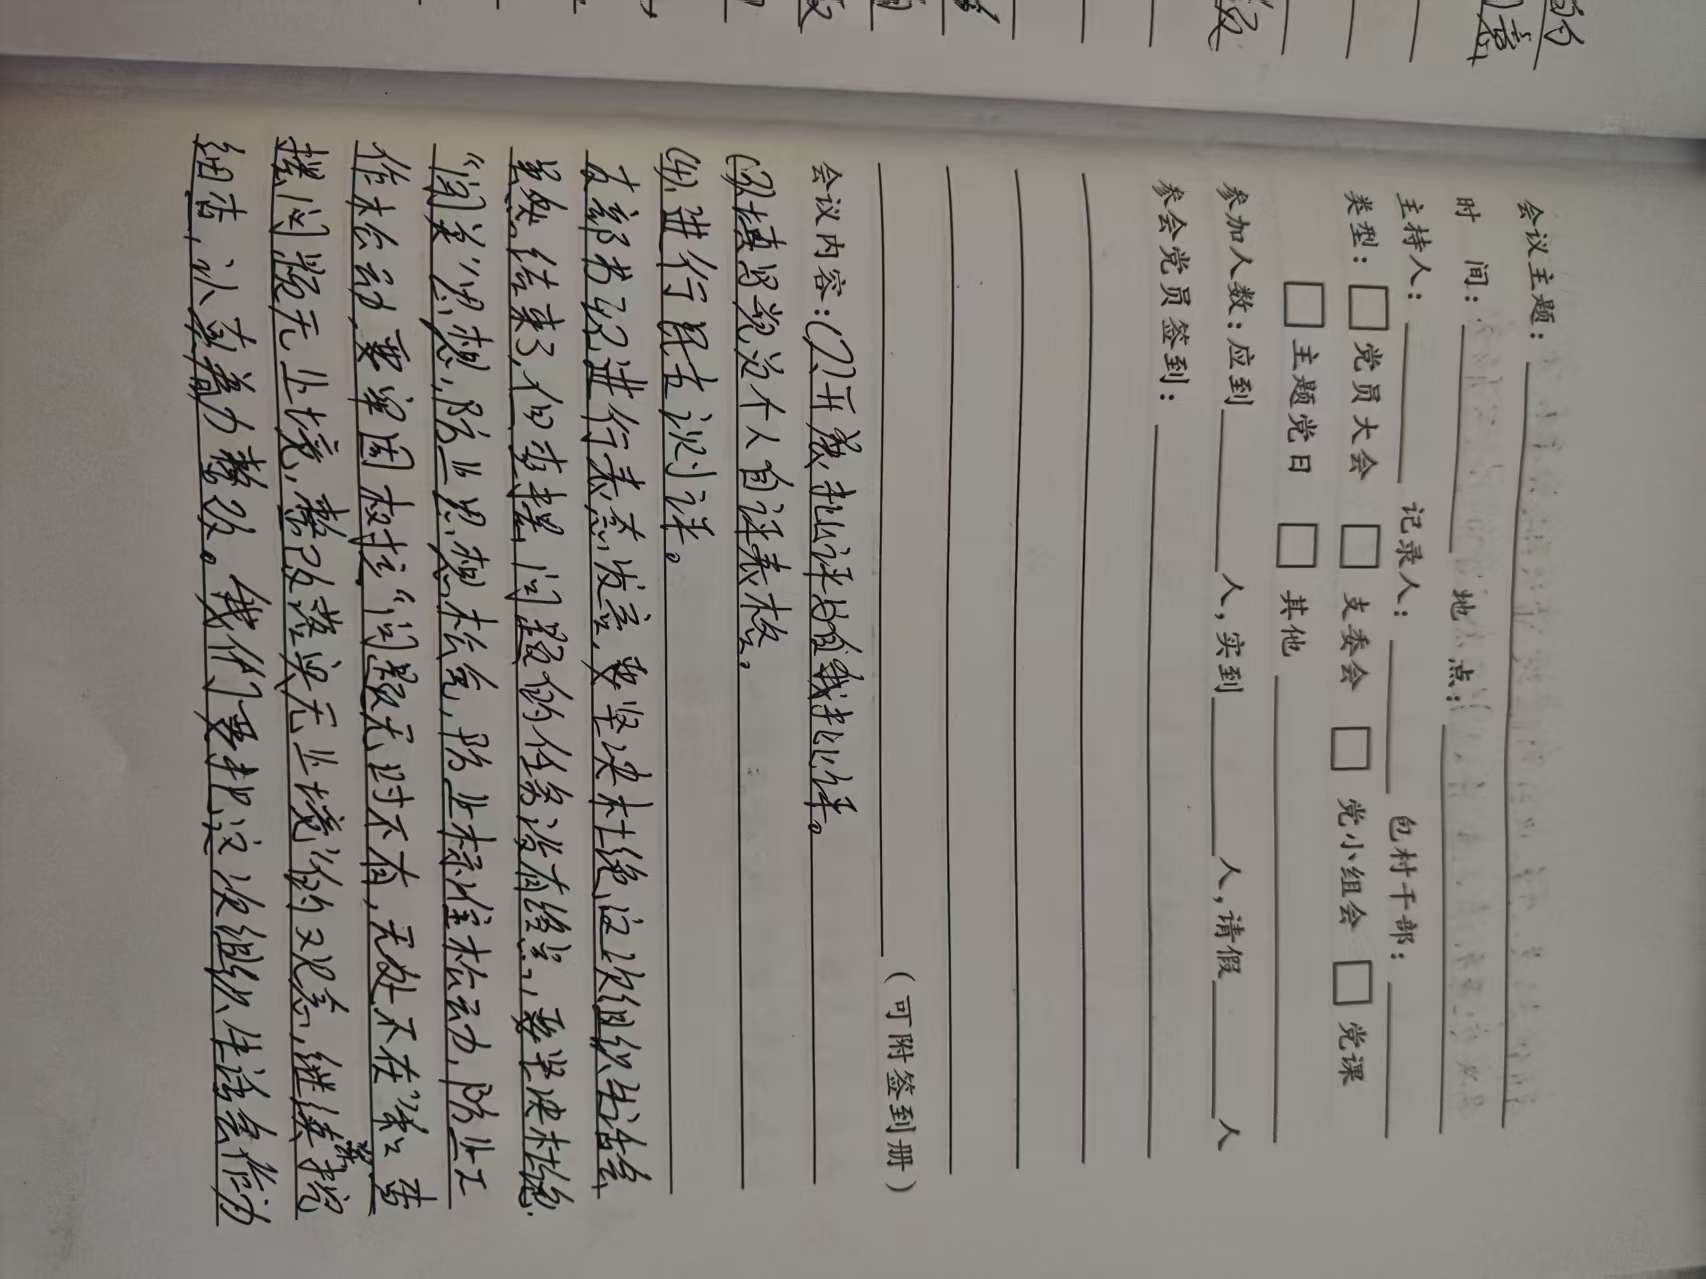 会议主题：
时 间： 地 点：
主持人： 记录人： 包村干部：
类型：□ 党员大会 □ 支委会 □ 党小组会 □ 党课
□ 主题党日 □ 其他
参加人数：应到 人，实到 人，请假 人
参会党员签到：
（可附签到册）
会议内容：(2).开展批评与自我批评。
(3).填写党员个人自评表格。
(4).进行民主测评。
支部书记进行表态发言，要坚决杜绝"这次组织生活会
虽然结束了，但查摆问题的任务没有终结"，要坚决杜绝
"闯关"思想，防止思想松绑，防止标准松动，防止工
作松劲，要牢固树立"问题无时不有，无处不在"和"查
摆问题无止境，整改落实无止境"的观念，继续聚
结合，认真着力整改。我们要把这次组织生活会作为